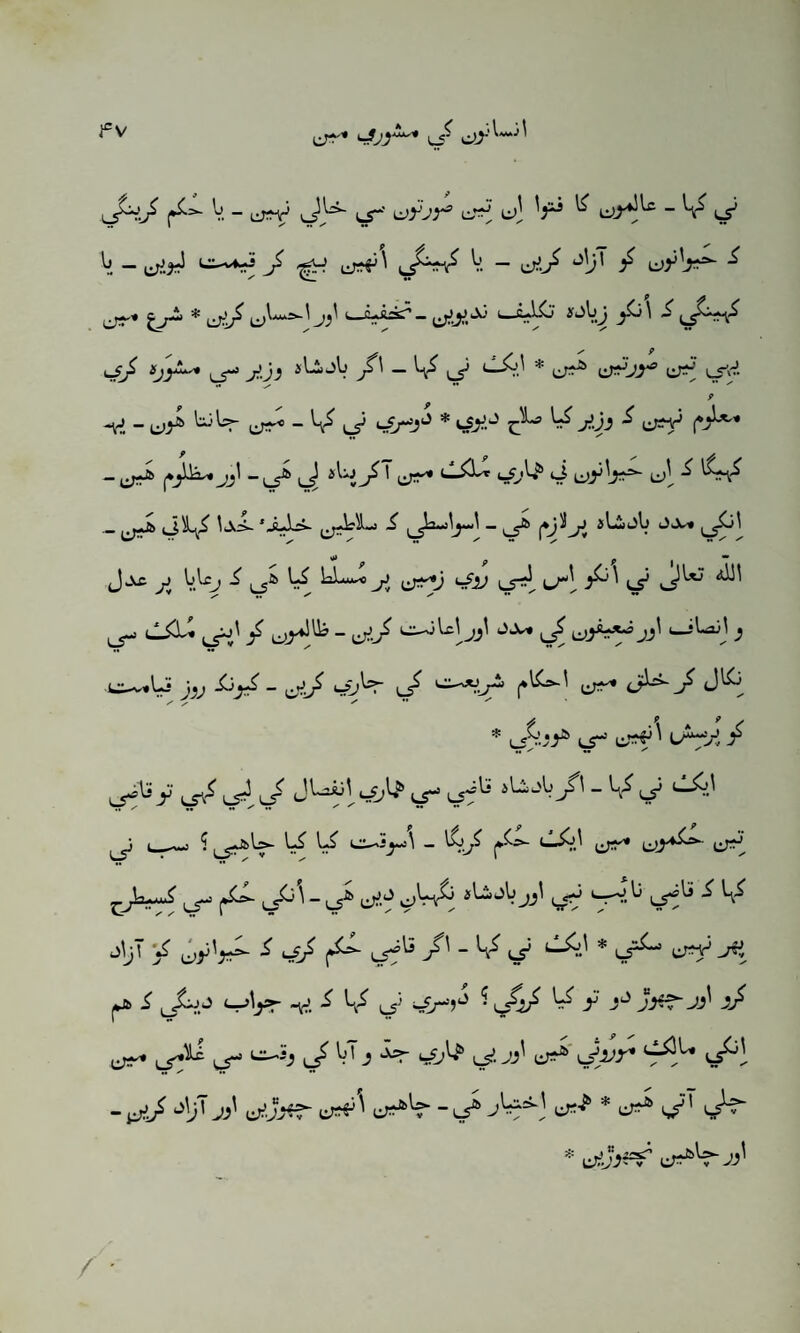 انسانوں کے مشورے میں ۳۷
نے کہا - عالموں کا فتوا ان تین صورتوں سے خالی نہیں - یا حکم کرینگے
کہ حیوانوں کو آزاد کریں - یا کہینگے اُنھیں بیچ کر قیمت لیویں - یا
کہینگے کہ اُنکو زیادہ تکلیف ندیویں - تخفیف اور احسان کریں * شرع میں
یہی تین صورتیں ہیں * ایک نے کہا - اگر بادشاہ وزیر سے مشورہ کرے
معلوم نہیں کہ وزیر کیا صلاح دیوے * دوسرے نے کہا - میں جانتا ہوں - یہ
کہیگا کہ ان حیوانوں نے ہمارے ملک میں آکر پناہ لی ہے - اور مظلوم ہیں -
اُنکی مدد بادشاہ پر لازم ہے - اسواسطے کہ سلاطین خلیفۂ خدا کہلاتے ہیں -
اللہ تعالی نے اُنکو اس لیے روے زمین پر مسلّط کیا ہے کہ رعایا پر عدل
و انصاف اور ضعیفوں کی مدد اور اعانت کریں - ظالموں کو اپنے ملک سے
نکال کر خلق میں احکام شریعت کے جاری کریں - کیونکہ روز قیامت
کو پُرسش اُنھیں سے ہوویگی *
ایک نے کہا - اگر بادشاہ قاضی سے ہمارے انفصال کے لیے کہے تو قاضی
تین حکموں میں ایک حکم کریگا - اسوقت کیا کیا چاہیے ؟ سب نے
کہا کہ قاضی نائب نبی اور بادشاہ نگہبان دین ہے - اُنکے حکم سے کسیطرح
پھر نہیں سکتے * ایک نے کہا - اگر قاضی حکم کرے کہ حیوانوں کو آزاد
کرو اور چھوڑ دو تو کیا کروگے ؟ دوسرے نے کہا کہ یہ جواب دینگے کہ ہم
اُنکے مالک موروثی ہیں اور یے ہمارے جد و آبا کے وقت سے غلامی میں
چلے آتے ہیں * ہمیں اختیار ہے - چاہیں اُنھیں چھوڑیں اور آزاد کریں -
اور چاہیں نچھوڑیں *